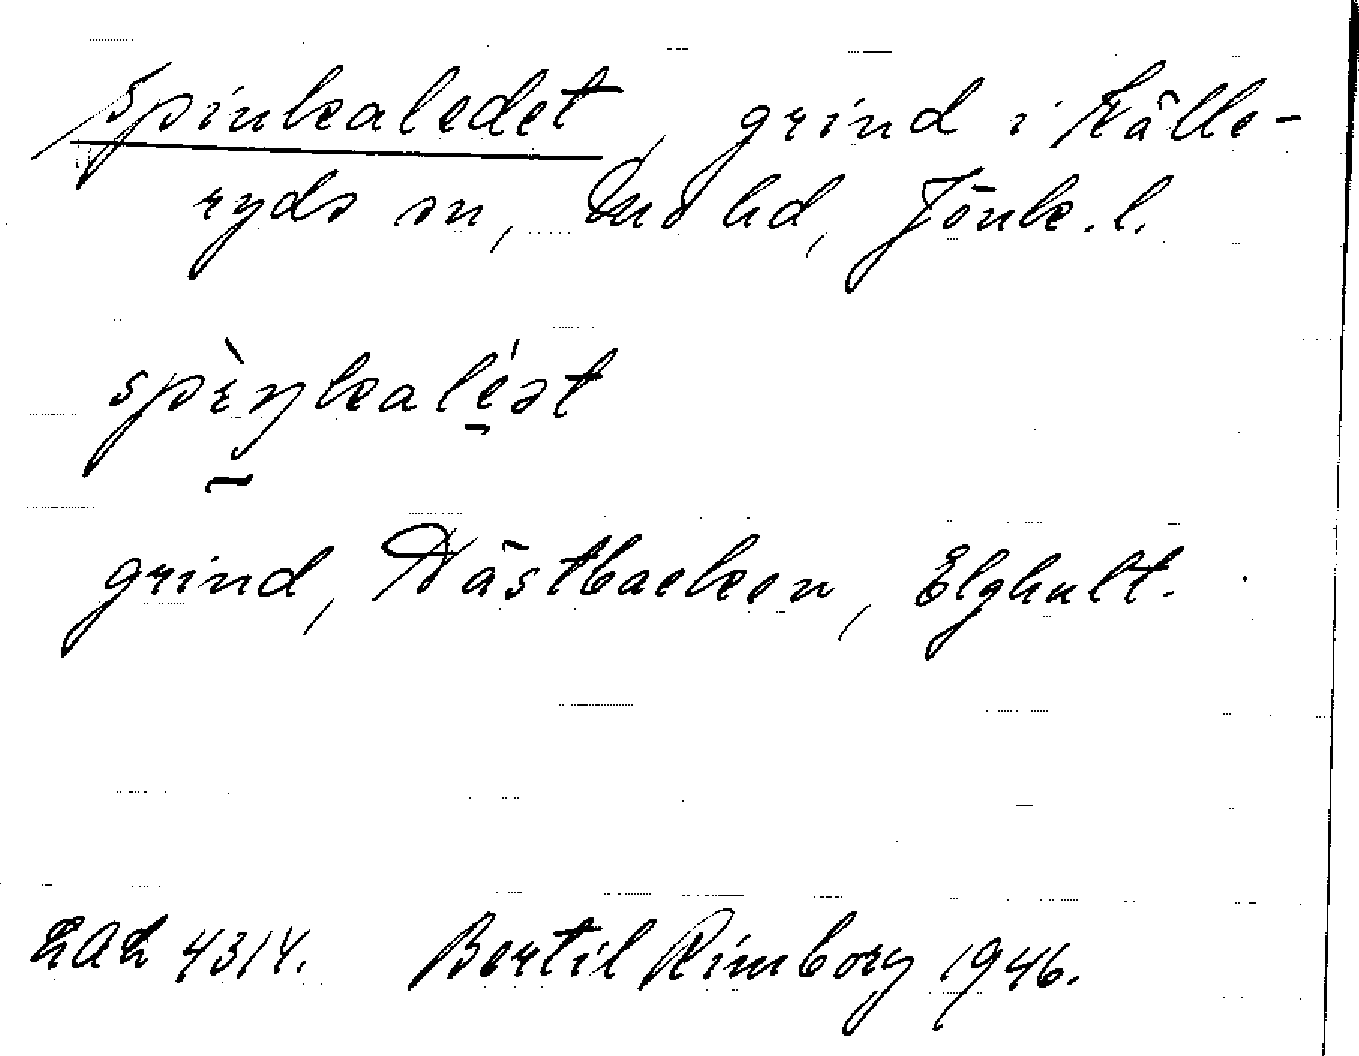 Spinkaledet, grind i Kålle-
ryds sn, Mo hd, Jönk. l.
spèŋkaléət
grind, Västbacken, Elghult.
LAL 4314. Bertil Rimborg 1946.